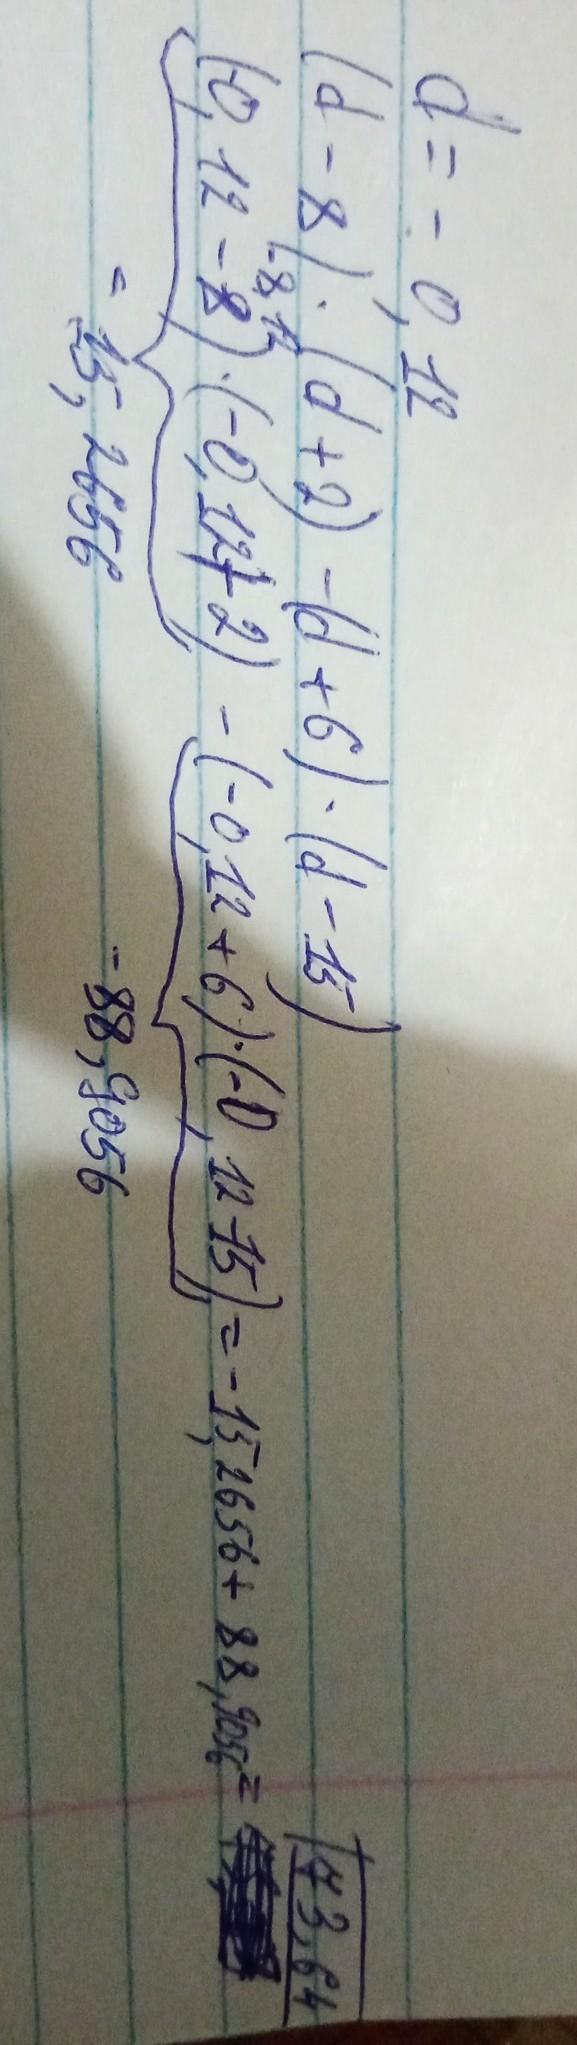 d = - 0,12
(d - 8) · (d + 2) - (d + 6) · (d - 15)
-8,12
(-0,12 - 8) · (-0,12 + 2) - (-0,12 + 6) · (-0,12 - 15) = - 15,2656 + 88,9056 =
73,64
= -15,2656
-88,9056